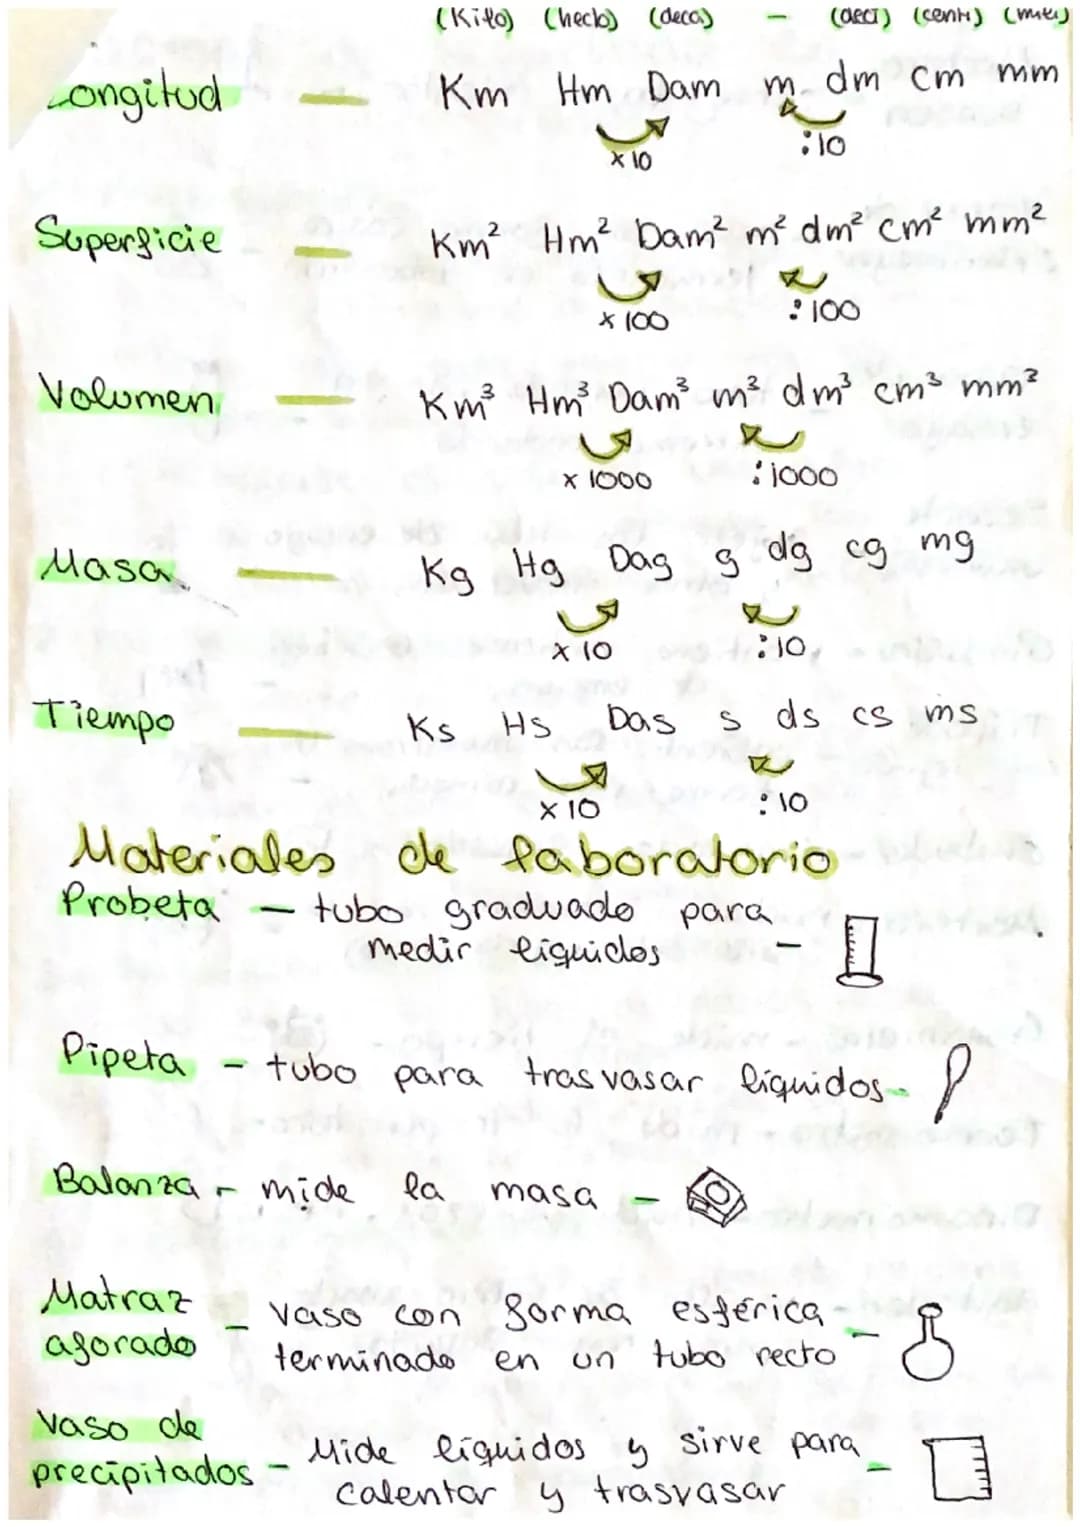 (Kilo) (hecto) (deca) - (deci) (centi) (mili)
Longitud — Km Hm Dam m dm cm mm
x10 :10
Superficie — Km² Hm² Dam² m² dm² cm² mm²
x100 :100
Volumen — Km³ Hm³ Dam³ m³ dm³ cm³ mm³
x1000 :1000
Masa — Kg Hg Dag g dg cg mg
x10 :10
Tiempo — Ks Hs Das s ds cs ms
x10 :10
Materiales de laboratorio
Probeta - tubo graduado para
medir líquidos -
Pipeta - tubo para trasvasar líquidos -
Balanza - mide la masa -
Matraz
aforado - vaso con forma esférica -
terminado en un tubo recto
Vaso de
precipitados - Mide líquidos y sirve para -
calentar y trasvasar